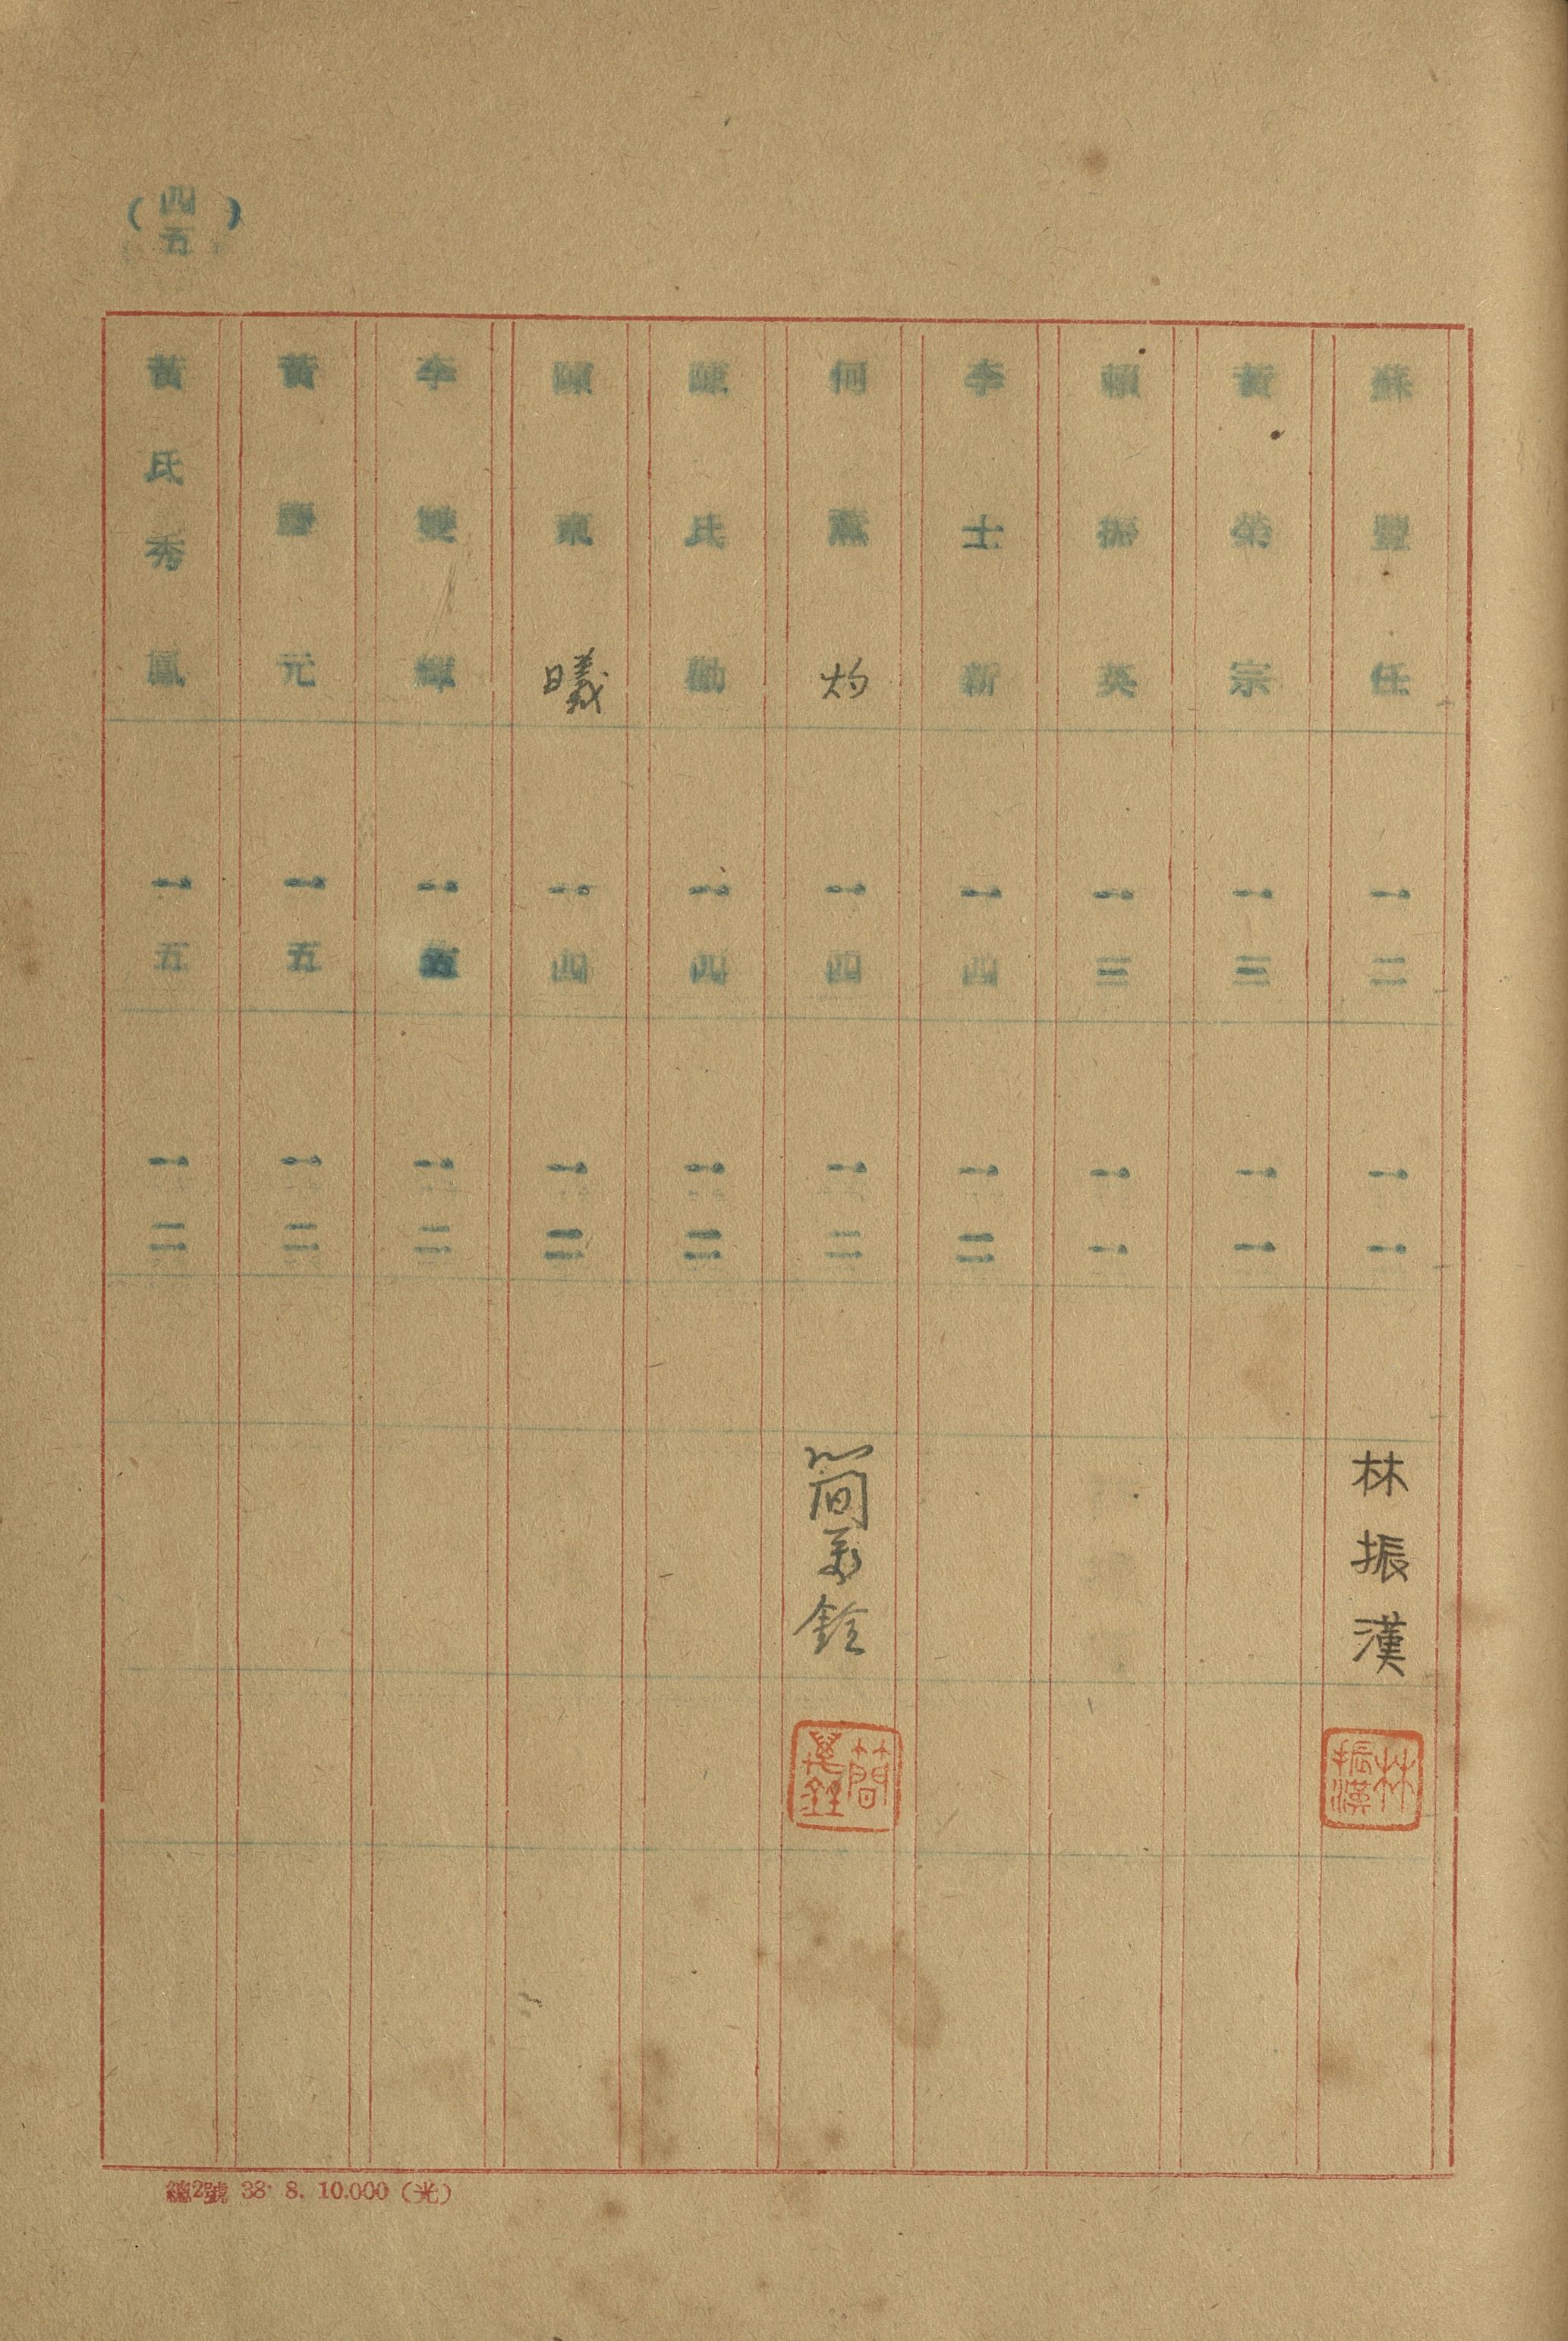 (四五)
蘇豐任 一二 一一 林振漢 林振漢
黃榮宗 一三 一一
賴振英 一三 一一
李士新 一四 一二
何薰灼 一四 一二 簡萬銓 簡萬銓
陳氏勤 一四 一二
陳東曦 一四 一二
李雙輝 一五 一二
黃慶元 一五 一二
黃氏秀鳳 一五 一二
總2號 38. 8. 10.000 (光)